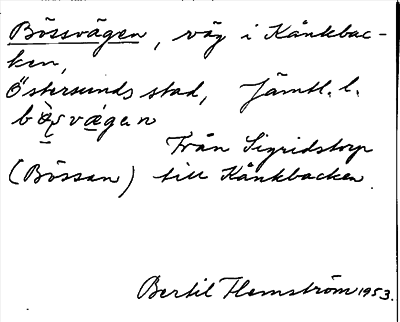 Bössvägen, väg i Kånkbac-
ken,
Östersunds stad, Jämtl. l.
Från Sigridstorp
(Bössan) till Kånkbacken.
Bertil Flemström 1953.